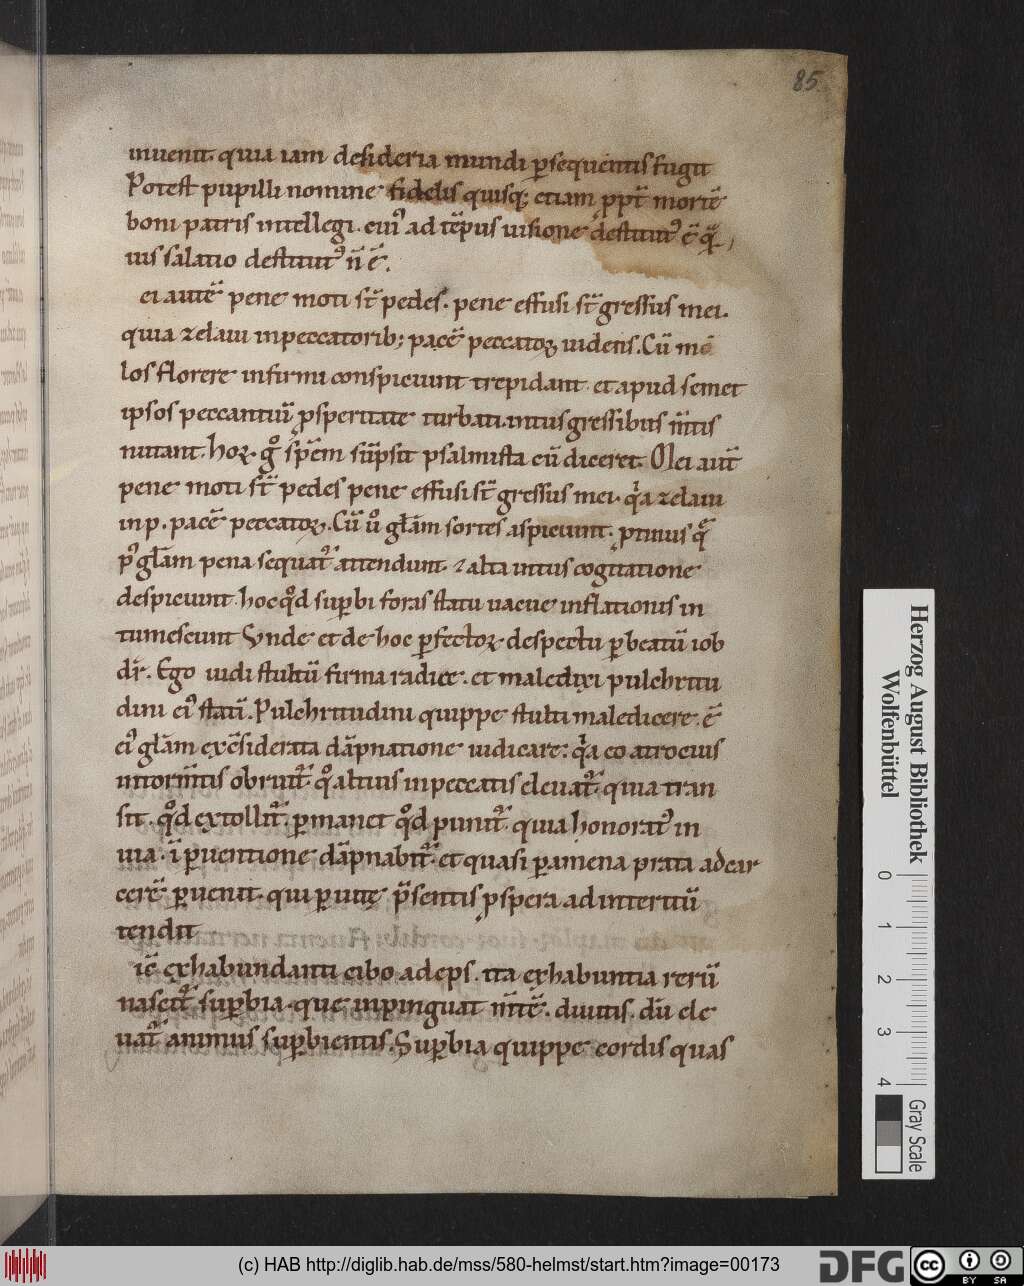 85
inuenit. quia iam desideria mundi p̱sequentis fugit
Potest pupilli nomine fidelis quisq; etiam ꝓpt̄ mortē
boni patris intellegi. eiꝰ ad tēpus uisione destitutꝰ ē q̄
uis salatio destitutꝰ n̄ ē.
ei autē pene moti st̄ pedes. pene effusi st̄ gressus mei.
quia zelaui in peccatorib; pacē peccatoꝝ uidens. Cū
los florere infirmi conspiciunt trepidant. et apud semet
ipsos peccantiū ꝓsperitate turbati. intus gressibus m̄tis
nutant. hoꝝ. gͦ sp̄em sūpsit psalmista cū diceret. Mei aut̄
pene moti st̄ pedes pene effusi st̄ gressus mei. qͥa zelaui
in p. pacē peccatoꝝ. Cū uͦ gl̄am fortes aspiciunt. ꝓtinus q̄
pꝰ gl̄am pena sequat᷑ attendunt. ⁊ alta intus cogitatione
despiciunt. hoc qͦd suꝑbi foras flatu uacue inflationis in
tumescunt Vnde et de hoc ꝑfectoꝝ despectu ꝑ beatū iob
dr̄. Ego uidi stultū firma radice. et maledixi pulchritu
dini eiꝰ statī. Pulchritudini quippe stulti maledicere. ē
eiꝰ gl̄am ex c̄siderata dāpnatione iudicare: qͥa eo atrocius
in torm̄tis obruit᷑. qͦ altius in peccatis eleuat᷑. quia tran
sit. qͦd extollit᷑. ꝑmanet qͦd punit᷑. quia honoratꝰ in
uia. ī ꝑuentione dāpnabit᷑. et quasi ꝑ amena prata ad car
cerē ꝑuenit. qui ꝑ uitę p̄sentis ꝓspera ad interitū
tendit
ic̄ ex habundanti cibo adeps. ita ex habuntia rerū
nascit᷑ suꝑbia. que inpinguat m̄tē. diuitis. dū ele
uat᷑ animus suꝑbientis. Suꝑbia quippe cordis quas
Herzog August Bibliothek
Wolfenbüttel
0 1 2 3 4
Gray Scale
(c) HAB http://diglib.hab.de/mss/580-helmst/start.htm?image=00173
DFG
cc
BY SA